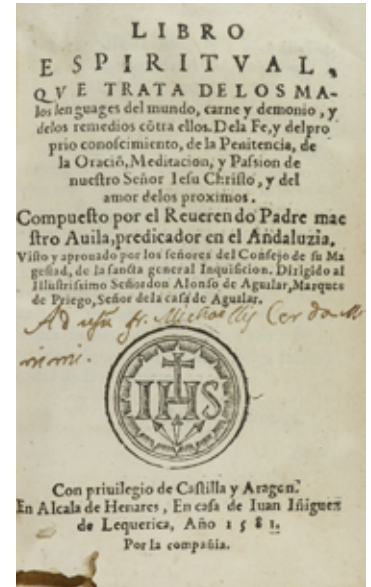 LIBRO
ESPIRITVAL,
QVE TRATA DELOS MA-
los lenguages del mundo, carne y demonio, y
delos remedios cõtra ellos. Dela Fe, y delpro
prio conoscimiento, de la Penitencia, de
la Oraciõ, Meditacion, y Passion de
nuestro Señor Iesu Christo, y del
amor delos proximos.
Compuesto por el Reueren do Padre mae
stro Auila, predicador en el Andaluzia.
Visto y aprouado por los señores del Consejo de su Ma
gestad, de la sancta general Inquisicion. Dirigido al
Illustrissimo Señor don Alonso de Aguilar, Marques
de Priego, Señor dela casa de Aguilar.
Ad usũ fr. Michaelis Cerda
IHS
Con priuilegio de Castilla y Aragon.
En Alcala de Henares, En casa de Iuan Iñiguez
de Lequerica, Año 1581.
Por la compañia.